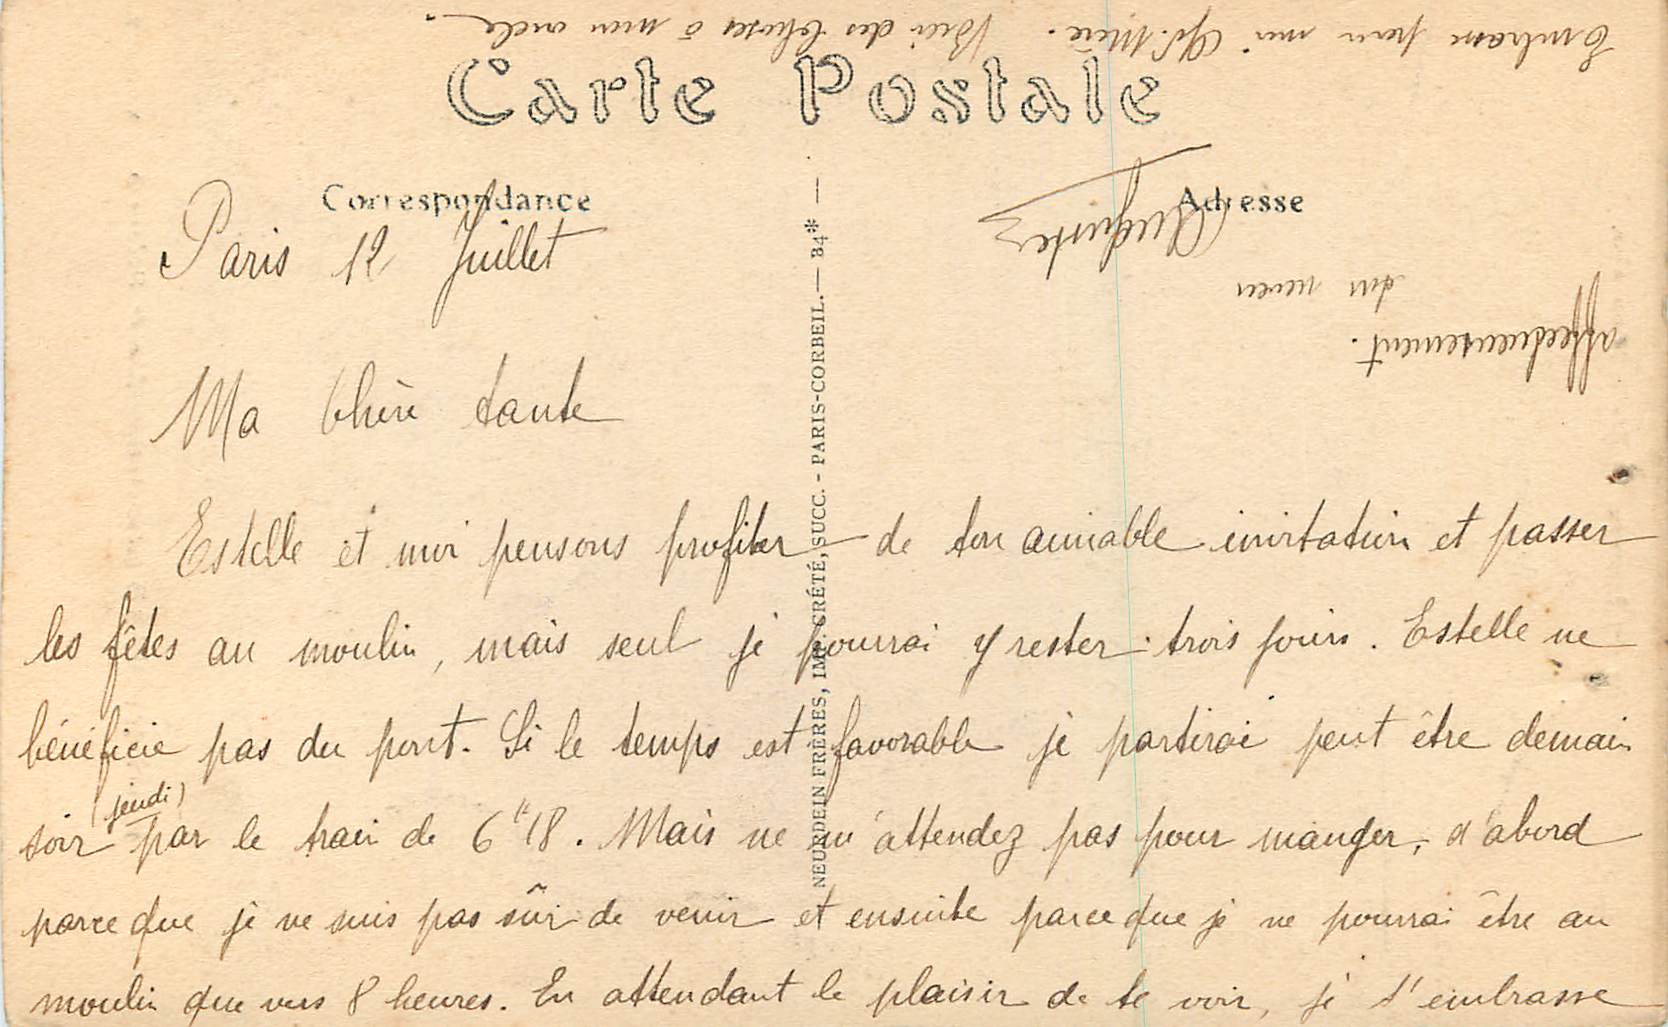 Carte Postale
Correspondance
Adresse
Paris 12 Juillet
Ma Chère tante
Estelle et moi pensons profiter de ton aimable invitation et passer
les fêtes au moulin, mais seul je pourrai y rester trois jours. Estelle ne
bénéficie pas du pont. Si le temps est favorable je partirai peut être demain
(jeudi)
soir par le train de 6h18. Mais ne m'attendez pas pour manger, d'abord
parce que je ne suis pas sûr de venir et ensuite parce que je ne pourrai être au
moulin que vers 8 heures. En attendant le plaisir de te voir, je t'embrasse
affectueusement.
ton neveu
Auguste
Embrasse pour moi Gd. Mère. Bien des choses à mon oncle.
NEURDEIN FRÈRES, IMP. CRÉTÉ, SUCC. - PARIS-CORBEIL. — B4* —